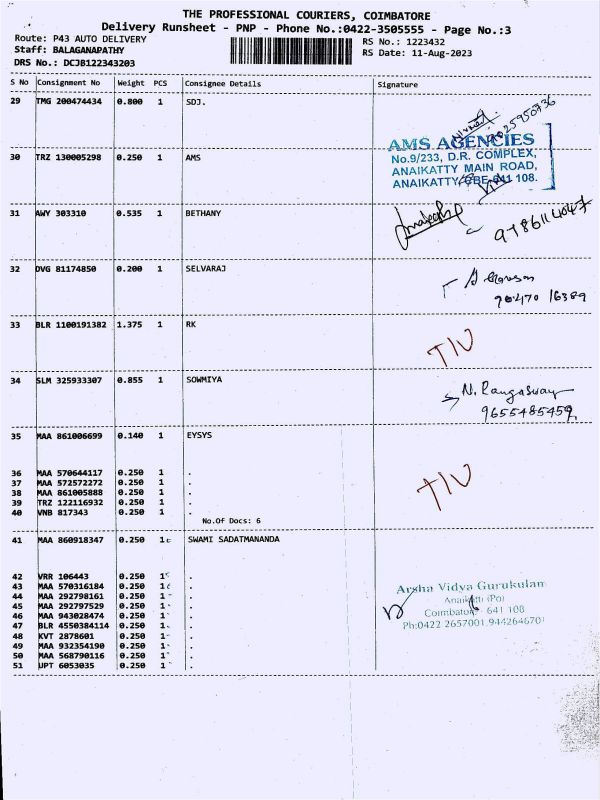 THE PROFESSIONAL COURIERS, COIMBATORE
Delivery Runsheet - PNP - Phone No.:0422-3505555 - Page No.:3
Route: P43 AUTO DELIVERY
RS No.: 1223432
Staff: BALAGANAPATHY
RS Date: 11-Aug-2023
DRS No.: DCJB122343203
S No Consignment No Weight PCS Consignee Details Signature
29 TMG 200474434 0.800 1 SDJ.
9025950736
AMS AGENCIES
30 TRZ 130005298 0.250 1 AMS
No.9/233, D.R. COMPLEX,
ANAIKATTY MAIN ROAD,
ANAIKATTY, CBE-641 108.
31 AWY 303310 0.535 1 BETHANY
32 DVG 81174850 0.200 1 SELVARAJ
33 BLR 1100191382 1.375 1 RK
34 SLM 325933307 0.855 1 SOWMIYA
N. Rangaswamy
9655485459
35 MAA 861006699 0.140 1 EYSYS
36 MAA 570644117 0.250 1 .
37 MAA 572572272 0.250 1 .
38 MAA 861005888 0.250 1 .
39 TRZ 122116932 0.250 1 .
40 VNB 817343 0.250 1 .
No.Of Docs: 6
41 MAA 860918347 0.250 1 SWAMI SADATMANANDA
42 VRR 106443 0.250 1 .
43 MAA 570316184 0.250 1 .
44 MAA 292798161 0.250 1 .
45 MAA 292797529 0.250 1 .
46 MAA 943028474 0.250 1 .
47 BLR 4550384114 0.250 1 .
48 KVT 2878601 0.250 1 .
49 MAA 932354190 0.250 1 .
50 MAA 568790116 0.250 1 .
51 UPT 6053035 0.250 1 .
Arsha Vidya Gurukulam
Anaikatti (Po)
Coimbatore 641 108
Ph:0422 2657001,9442646701